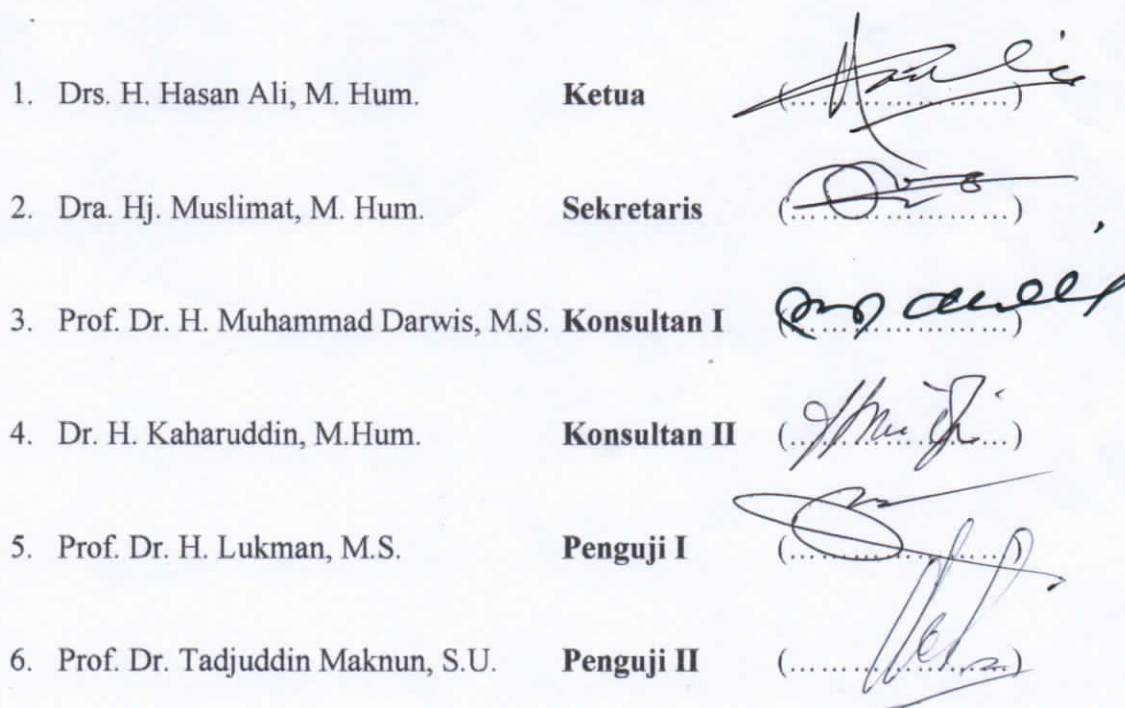 1. Drs. H. Hasan Ali, M. Hum. Ketua (....................)
2. Dra. Hj. Muslimat, M. Hum. Sekretaris (....................)
3. Prof. Dr. H. Muhammad Darwis, M.S. Konsultan I (....................)
4. Dr. H. Kaharuddin, M.Hum. Konsultan II (....................)
5. Prof. Dr. H. Lukman, M.S. Penguji I (....................)
6. Prof. Dr. Tadjuddin Maknun, S.U. Penguji II (....................)